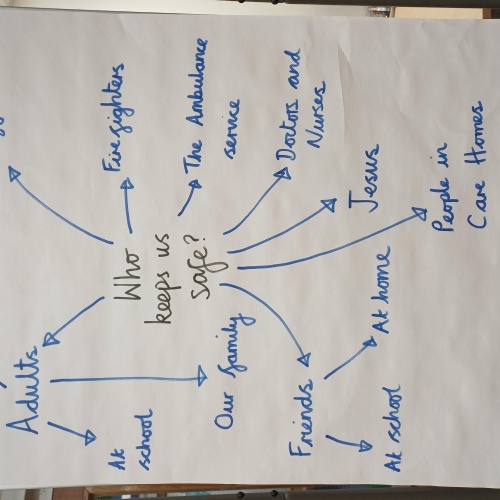 Adults
At
school
Our family
Who
keeps us
safe?
Firefighters
The Ambulance
service
Doctors and
Nurses
Jesus
People in
Care Homes
Friends
At school
At home